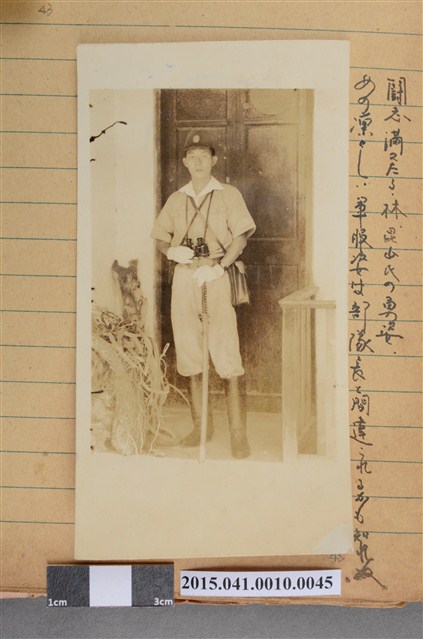 闘志満々たる林昆山氏の勇姿、
あの凛々しい軍服姿は部隊長と間違へられるかも知れぬ
43
45
1cm
3cm
2015.041.0010.0045